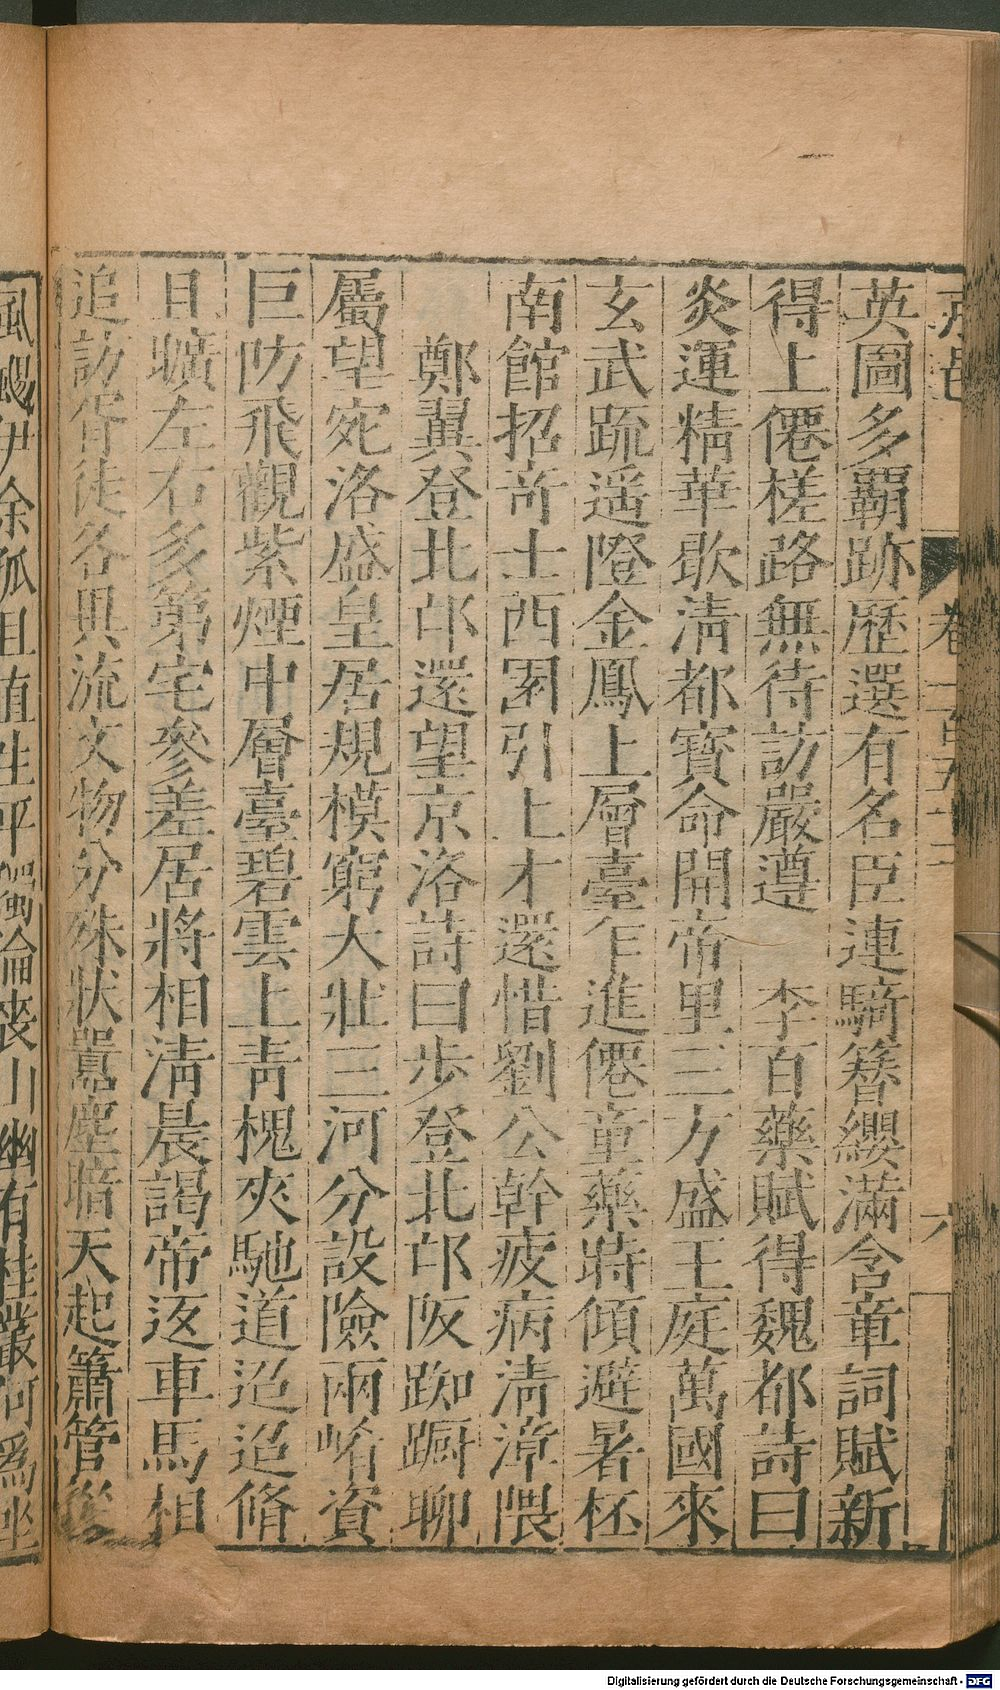 卷二百五十二
六
英圖多覇跡歷選有名臣連騎簪纓滿含章詞賦新
得上僊槎路無待訪嚴遵 李百藥賦得魏都詩曰
炎運精華歇淸都寳命開帝里三方盛王庭萬國來
玄武疏遥隥金鳳上層臺乍進僊童藥時傾避暑杯
南館招竒士西園引上才還惜劉公幹疲病淸漳隈
鄭翼登北邙還望京洛詩曰步登北邙阪踟蹰聊
屬望宛洛盛皇居規模窮大壯三河分設險兩崤資
巨防飛觀紫煙中層臺碧雲上靑槐夾馳道迢迢脩
且曠左右多第宅參差居將相淸晨謁帝返車馬相
追訪胥徒各異流文物分殊狀囂塵暗天起簫管
風飈伊余孤且直生平獨淪喪山幽有桂叢何爲坐
Digitalisierung gefördert durch die Deutsche Forschungsgemeinschaft - DFG